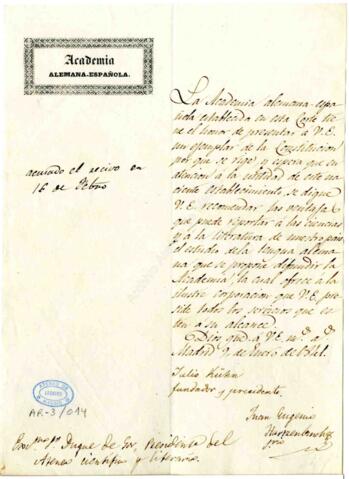 Academia
ALEMANA-ESPAÑOLA.
acusado el recivo en
16 de Febro
La Academia alemana-espa
ñola establecida en esta Corte tie
ne el honor de presentar á V.E.
un ejemplar de la Constitucion
por que se rige y espera que en
atencion á la utilidad de este na
ciente establecimiento, se digne
V.E. recomendar las ventajas
que puede reportar á las ciencias
y á la literatura de nuestro pais
el estudio de la lengua alema
na que se propone difundir la
Academia, la cual ofrece á la
ilustre corporacion que V.E. pre
side todos los servicios que es
ten á su alcance.
Dios gue. á V.E. ms. as.
Madrid 9 de Enero de 1841.
Julio Kühn
fundador y presidente.
Juan Eugenio
Hartzenbusch
srio
ATENEO DE
MADRID
AR-3/014
Exmo. Sor. Duque de Presidente del
Ateneo cientifico y literario.